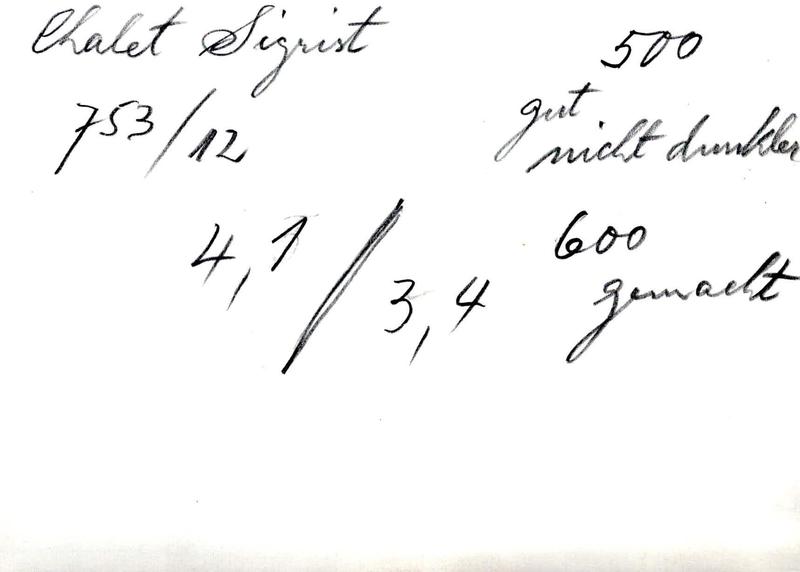 Chalet Sigrist
500
753/12
gut
nicht dunkler
4,1 / 3,4
600
gemacht